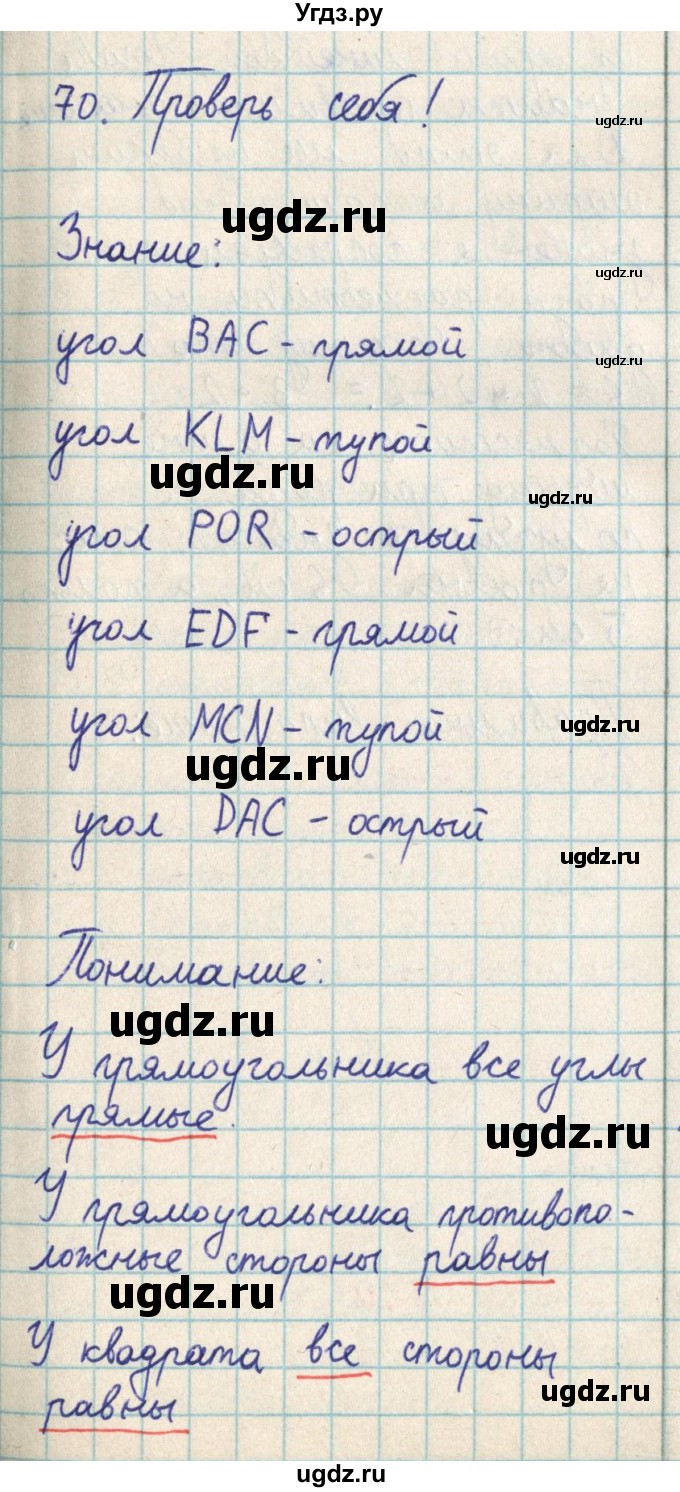 Угдз.ру
70. Проверь себя!
ugdz.ru
ugdz.ru
Знание:
ugdz.ru
угол BAC - прямой
ugdz.ru
угол KLM - тупой
ugdz.ru
ugdz.ru
угол POR - острый
угол EDF - прямой
угол MCN - тупой
ugdz.ru
ugdz.ru
угол DAC - острый
ugdz.ru
Понимание:
ugdz.ru
У прямоугольника все углы
прямые.
ugdz.ru
У прямоугольника противопо-
ложные стороны равны
ugdz.ru
У квадрата все стороны
ugdz.ru
равны
ugdz.ru